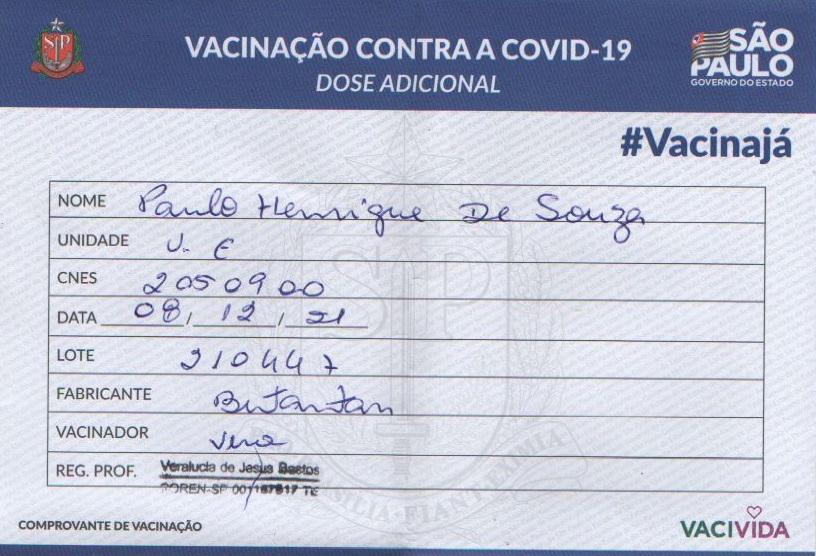 VACINAÇÃO CONTRA A COVID-19
DOSE ADICIONAL
SÃO
PAULO
GOVERNO DO ESTADO
#Vacinajá
NOME Paulo Henrique De Souza
UNIDADE U. E
CNES 2050900
DATA 08/12/21
LOTE 210447
FABRICANTE Butantan
VACINADOR Vera
REG. PROF. Veralucia de Jesus Bastos
COREN-SP TE
COMPROVANTE DE VACINAÇÃO
VACIVIDA